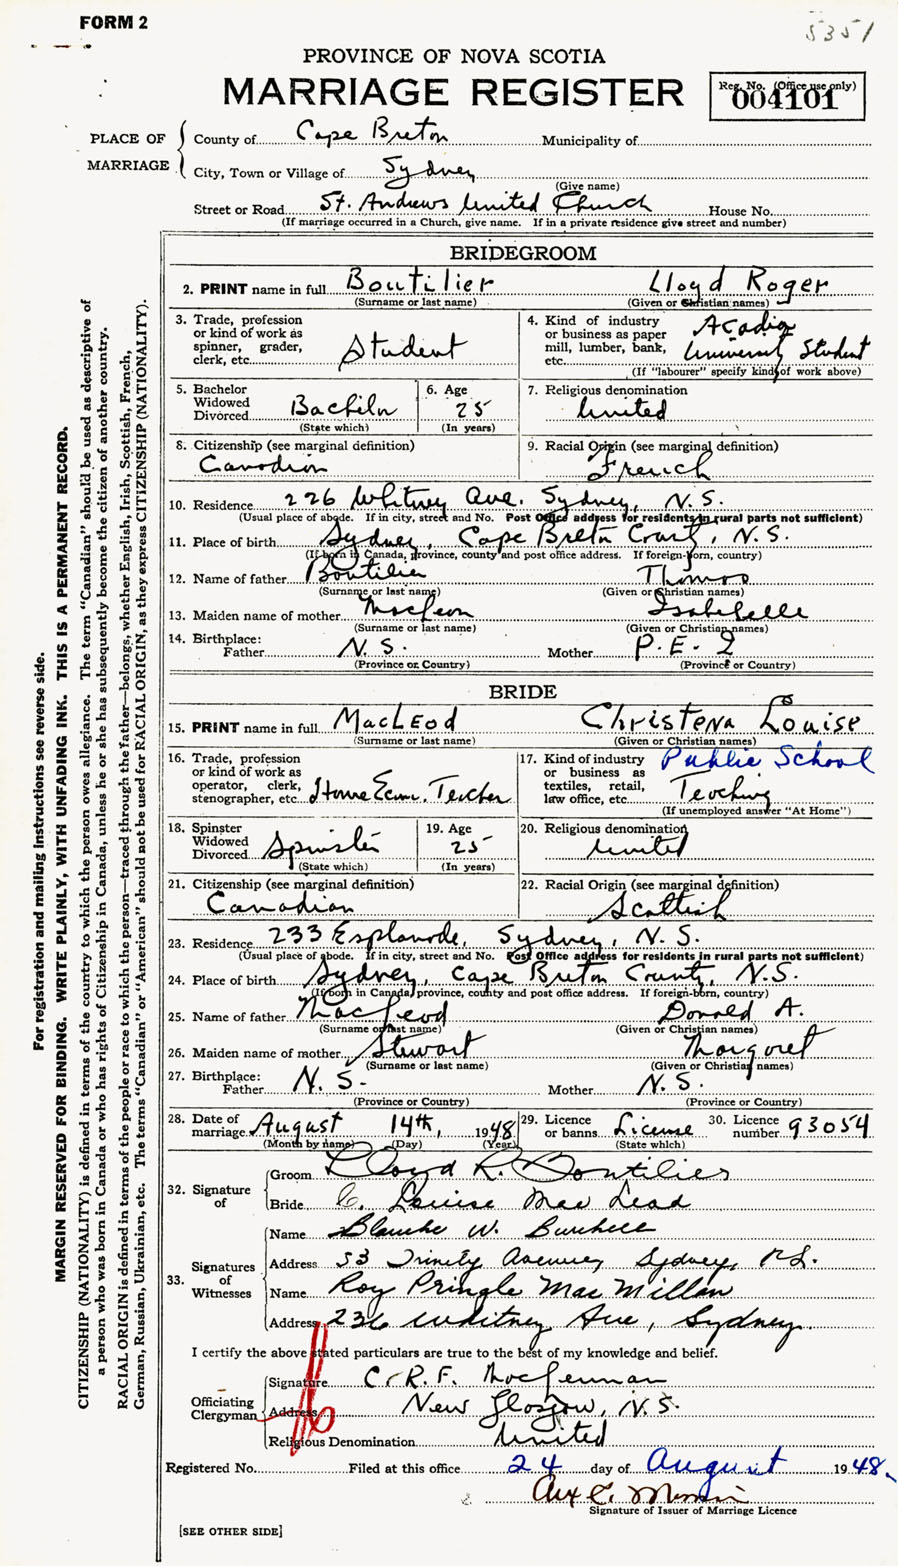 FORM 2
5351
PROVINCE OF NOVA SCOTIA
MARRIAGE REGISTER
Reg. No. (Office use only)
004101
PLACE OF MARRIAGE
County of Cape Breton Municipality of
City, Town or Village of Sydney
(Give name)
Street or Road St. Andrews United Church House No.
(If marriage occurred in a Church, give name. If in a private residence give street and number)
BRIDEGROOM
2. PRINT name in full Boutilier Lloyd Roger
(Surname or last name) (Given or Christian names)
3. Trade, profession or kind of work as spinner, grader, clerk, etc. Student
4. Kind of industry or business as paper mill, lumber, bank, etc. Acadia University Student
(If "labourer" specify kind of work above)
5. Bachelor Widowed Divorced Bachelor
(State which)
6. Age 25
(In years)
7. Religious denomination United
8. Citizenship (see marginal definition) Canadian
9. Racial Origin (see marginal definition) French
10. Residence 226 Whitney Ave. Sydney, N.S.
(Usual place of abode. If in city, street and No. Post Office address for residents in rural parts not sufficient)
11. Place of birth Sydney, Cape Breton County, N.S.
(If born in Canada, province, county and post office address. If foreign-born, country)
12. Name of father Boutilier Thomas
(Surname or last name) (Given or Christian names)
13. Maiden name of mother MacLean Isabelle
(Surname or last name) (Given or Christian names)
14. Birthplace: Father N.S. Mother P.E.I
(Province or Country) (Province or Country)
BRIDE
15. PRINT name in full MacLeod Christena Louise
(Surname or last name) (Given or Christian names)
16. Trade, profession or kind of work as operator, clerk, stenographer, etc. Home Econ. Teacher
17. Kind of industry or business as textiles, retail, law office, etc. Public School Teaching
(If unemployed answer "At Home")
18. Spinster Widowed Divorced Spinster
(State which)
19. Age 25
(In years)
20. Religious denomination United
21. Citizenship (see marginal definition) Canadian
22. Racial Origin (see marginal definition) Scottish
23. Residence 233 Esplanade, Sydney, N.S.
(Usual place of abode. If in city, street and No. Post Office address for residents in rural parts not sufficient)
24. Place of birth Sydney, Cape Breton County, N.S.
(If born in Canada, province, county and post office address. If foreign-born, country)
25. Name of father MacLeod Donald A.
(Surname or last name) (Given or Christian names)
26. Maiden name of mother Stewart Margaret
(Surname or last name) (Given or Christian names)
27. Birthplace: Father N.S. Mother N.S.
(Province or Country) (Province or Country)
28. Date of marriage August 14th, 1948
(Month by name) (Day) (Year)
29. Licence or banns License
(State which)
30. Licence number 93054
32. Signature of
Groom Lloyd R. Boutilier
Bride C. Louise MacLeod
33. Signatures of Witnesses
Name Blanche W. Burchell
Address 53 Trinity Avenue, Sydney, N.S.
Name Roy Pringle MacMillan
Address 236 Whitney Ave, Sydney.
I certify the above stated particulars are true to the best of my knowledge and belief.
Officiating Clergyman
Signature C.R.F. MacLennan
Address New Glasgow, N.S.
Religious Denomination United
Registered No. Filed at this office 24 day of August 1948.
Signature of Issuer of Marriage Licence
[SEE OTHER SIDE]
For registration and mailing instructions see reverse side.
MARGIN RESERVED FOR BINDING. WRITE PLAINLY, WITH UNFADING INK. THIS IS A PERMANENT RECORD.
CITIZENSHIP (NATIONALITY) is defined in terms of the country to which the person owes allegiance. The term "Canadian" should be used as descriptive of
a person who was born in Canada or who has rights of Citizenship in Canada, unless he or she has subsequently become the citizen of another country.
RACIAL ORIGIN is defined in terms of the people or race to which the person—traced through the father—belongs, whether English, Irish, Scottish, French,
German, Russian, Ukrainian, etc. The terms "Canadian" or "American" should not be used for RACIAL ORIGIN, as they express CITIZENSHIP (NATIONALITY).